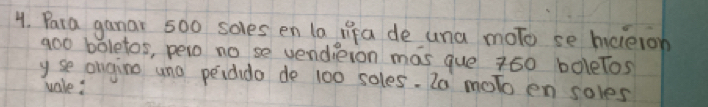 4. Para ganar 500 soles en la rifa de una moto se hicieron
900 boletos, pero no se vendieron más que 760 boletos
y se origino una perdida de 100 soles. La moto en soles
vale: